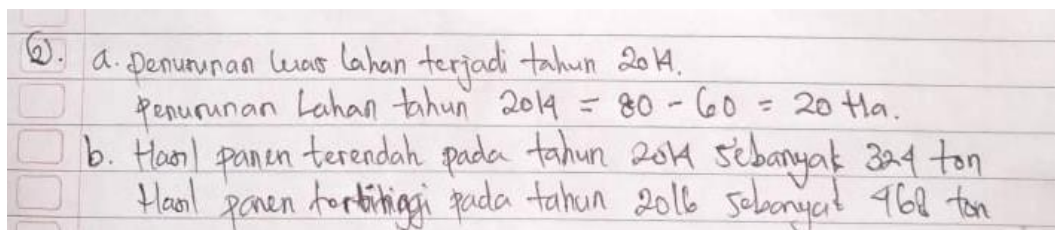 ②. a. Penurunan luas lahan terjadi tahun 2014.
Penurunan Lahan tahun 2014 = 80 - 60 = 20 Ha.
b. Hasil panen terendah pada tahun 2014 sebanyak 324 ton
Hasil panen tertinggi pada tahun 2016 sebanyak 468 ton